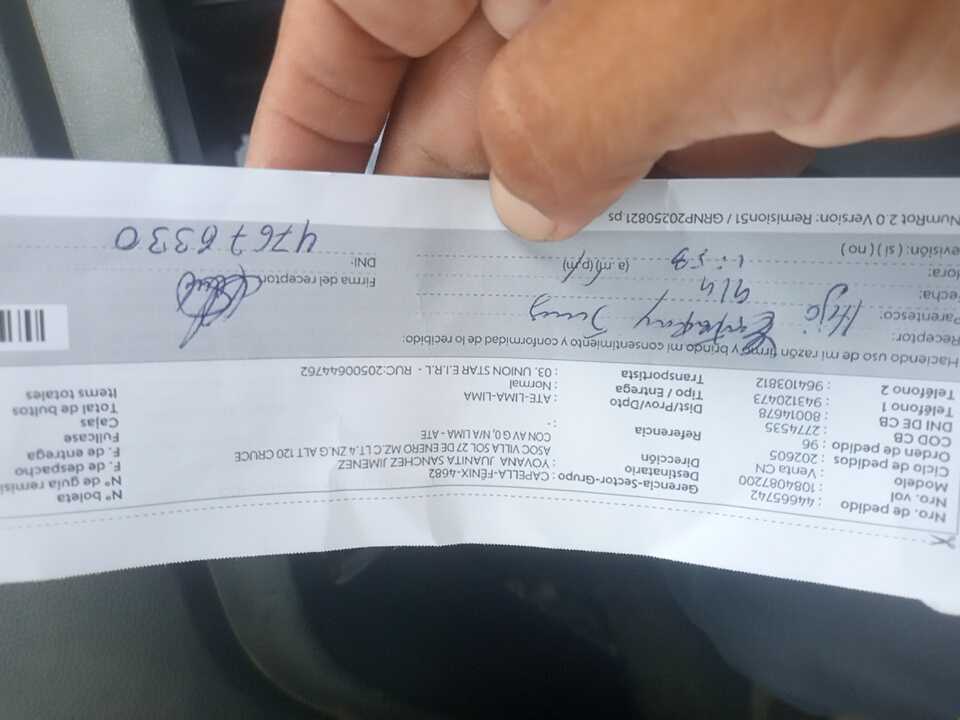 Nro. de pedido : 44665742
Nro. vol. : 1084087200
Modelo : Venta CN
Ciclo de pedidos : 202605
Orden de pedido : 96
COD CB : 27774535
DNI DE CB : 80014678
Teléfono 1 : 943120473
Teléfono 2 : 964103812
Gerencia-Sector-Grupo : CAPELLA-FÉNIX-4682
Destinatario : YOVANA JUANITA SANCHEZ JIMENEZ
Dirección : ASOC VILLA SOL 27 DE ENERO MZ.C LT.4 ZN.G ALT 120 CRUCE
CON AV G,0, N/A LIMA - ATE
Referencia : -
Dist/Prov/Dpto : ATE-LIMA-LIMA
Tipo / Entrega : Normal
Transportista : 03. UNION STAR E.I.R.L - RUC:20500644762
N° boleta
N° de guía remisi
F. de despacho
F. de entrega
Fullcase
Cajas
Total de bultos
Items totales
Haciendo uso de mi razón firmo y brindo mi consentimiento y conformidad de lo recibido:
Receptor:
Parentesco: Hijo
Fecha: 9/4
Hora: 1:59 (a.m) (p.m)
evisión: ( si ) ( no )
Firma del receptor
DNI: 47676330
NumRot 2.0 Version: Remision51 / GRNP20250821.ps